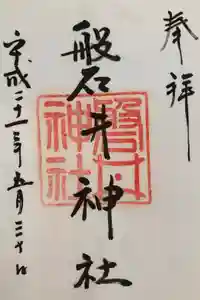 奉拝
磐井神社
磐井
神社
平成二十一年五月三十日